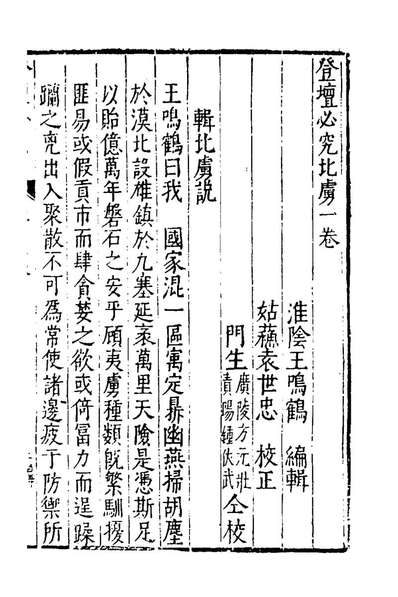 登壇必究北虜一卷
淮陰王鳴鶴 編輯
姑蘇袁世忠 校正
門生廣陵方元壯
瀆陽鍾伏武仝校
輯北虜說
王鳴鶴曰我 國家混一區寓定鼎幽燕掃胡塵
於漠北設雄鎮於九塞延袤萬里天險是憑斯足
以貽億萬年磐石之安乎顧夷虜種類旣繁馴擾
匪易或假貢市而肆貪婪之欲或倚富力而逞躁
躪之兇出入聚散不可爲常使諸邊疲于防禦所